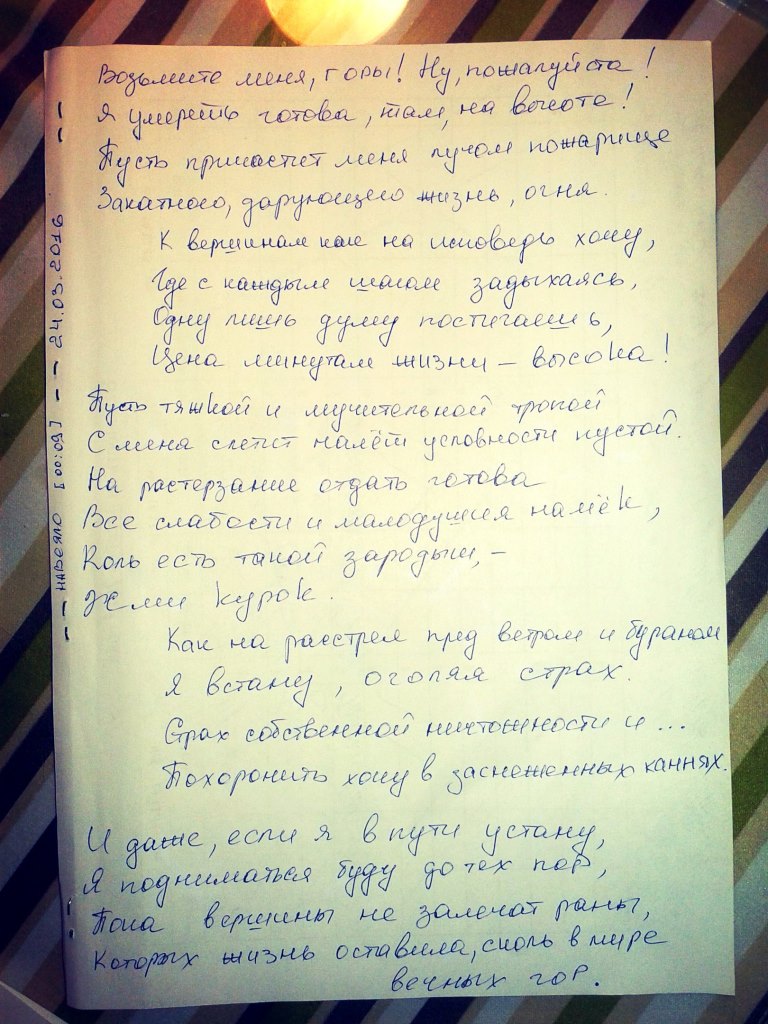 Возьмите меня, горы! Ну, пожалуйста!
Я умереть готова, там, на высоте!
Пусть причастит меня лучом пожарище
Закатного, дарующего жизнь, огня.
К вершинам как на исповедь хожу,
Где с каждым шагом задыхаясь,
Одну лишь думу постигаешь,
Цена минутам жизни – высока!
Пусть тяжкой и мучительной тропой
С меня слетит налёт условности пустой.
На растерзание отдать готова
Все слабости и малодушия намёк,
Коль есть такой зародыш, –
Жми курок.
Как на расстрел пред ветром и бураном
Я встану, оголяя страх.
Страх собственной ничтожности и ...
Похоронить хочу в заснеженных камнях.
И даже, если я в пути устану,
Я подниматься буду до тех пор,
Пока вершины не залечат раны,
Которых жизнь оставила, сколь в мире
вечных гор.
– – НАВЕЯЛО [00:09] – – 24.03.2016 – –